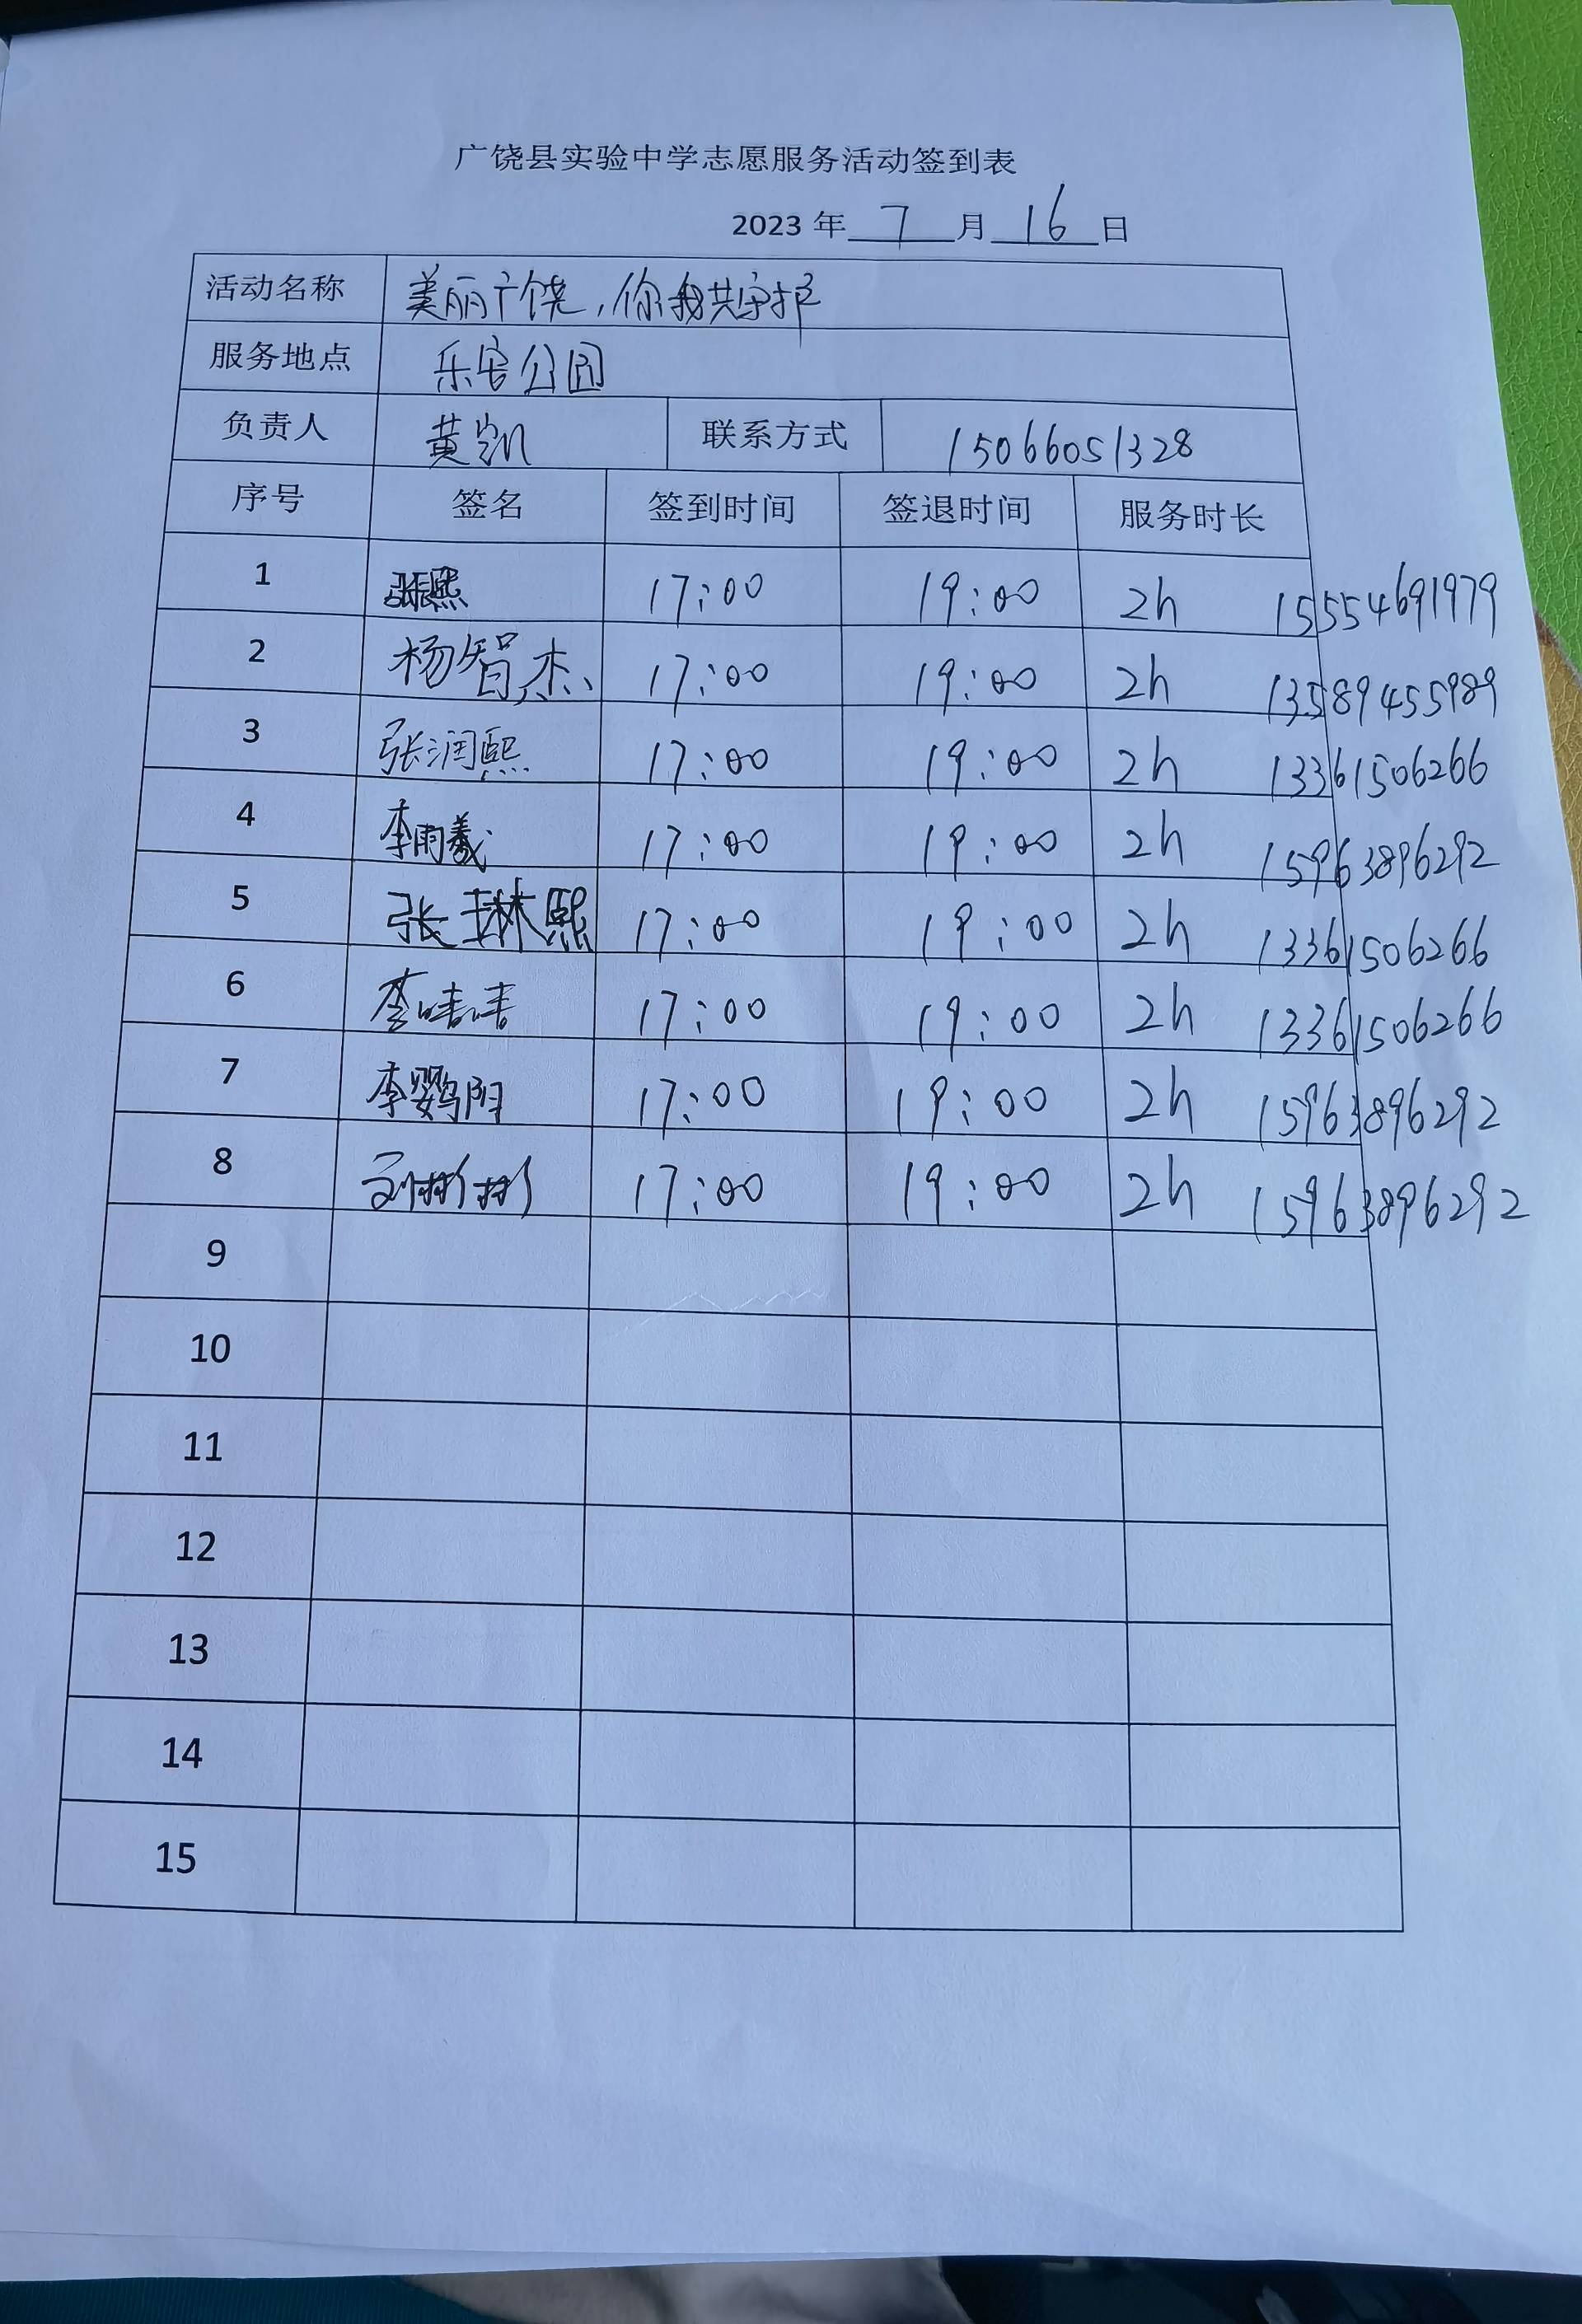 广饶县实验中学志愿服务活动签到表
2023 年 7 月 16 日
活动名称 美丽广饶,你我共守护
服务地点 乐安公园
负责人 黄凯 联系方式 15066051328
序号 签名 签到时间 签退时间 服务时长
1 张熙 17:00 19:00 2h 15554691979
2 杨智杰 17:00 19:00 2h 13589455989
3 张润熙 17:00 19:00 2h 13361506266
4 李雨羲 17:00 19:00 2h 15963896292
5 张琳熙 17:00 19:00 2h 13361506266
6 李 17:00 19:00 2h 13361506266
7 李鹦阳 17:00 19:00 2h 15963896292
8 刘彬彬 17:00 19:00 2h 15963896292
9
10
11
12
13
14
15